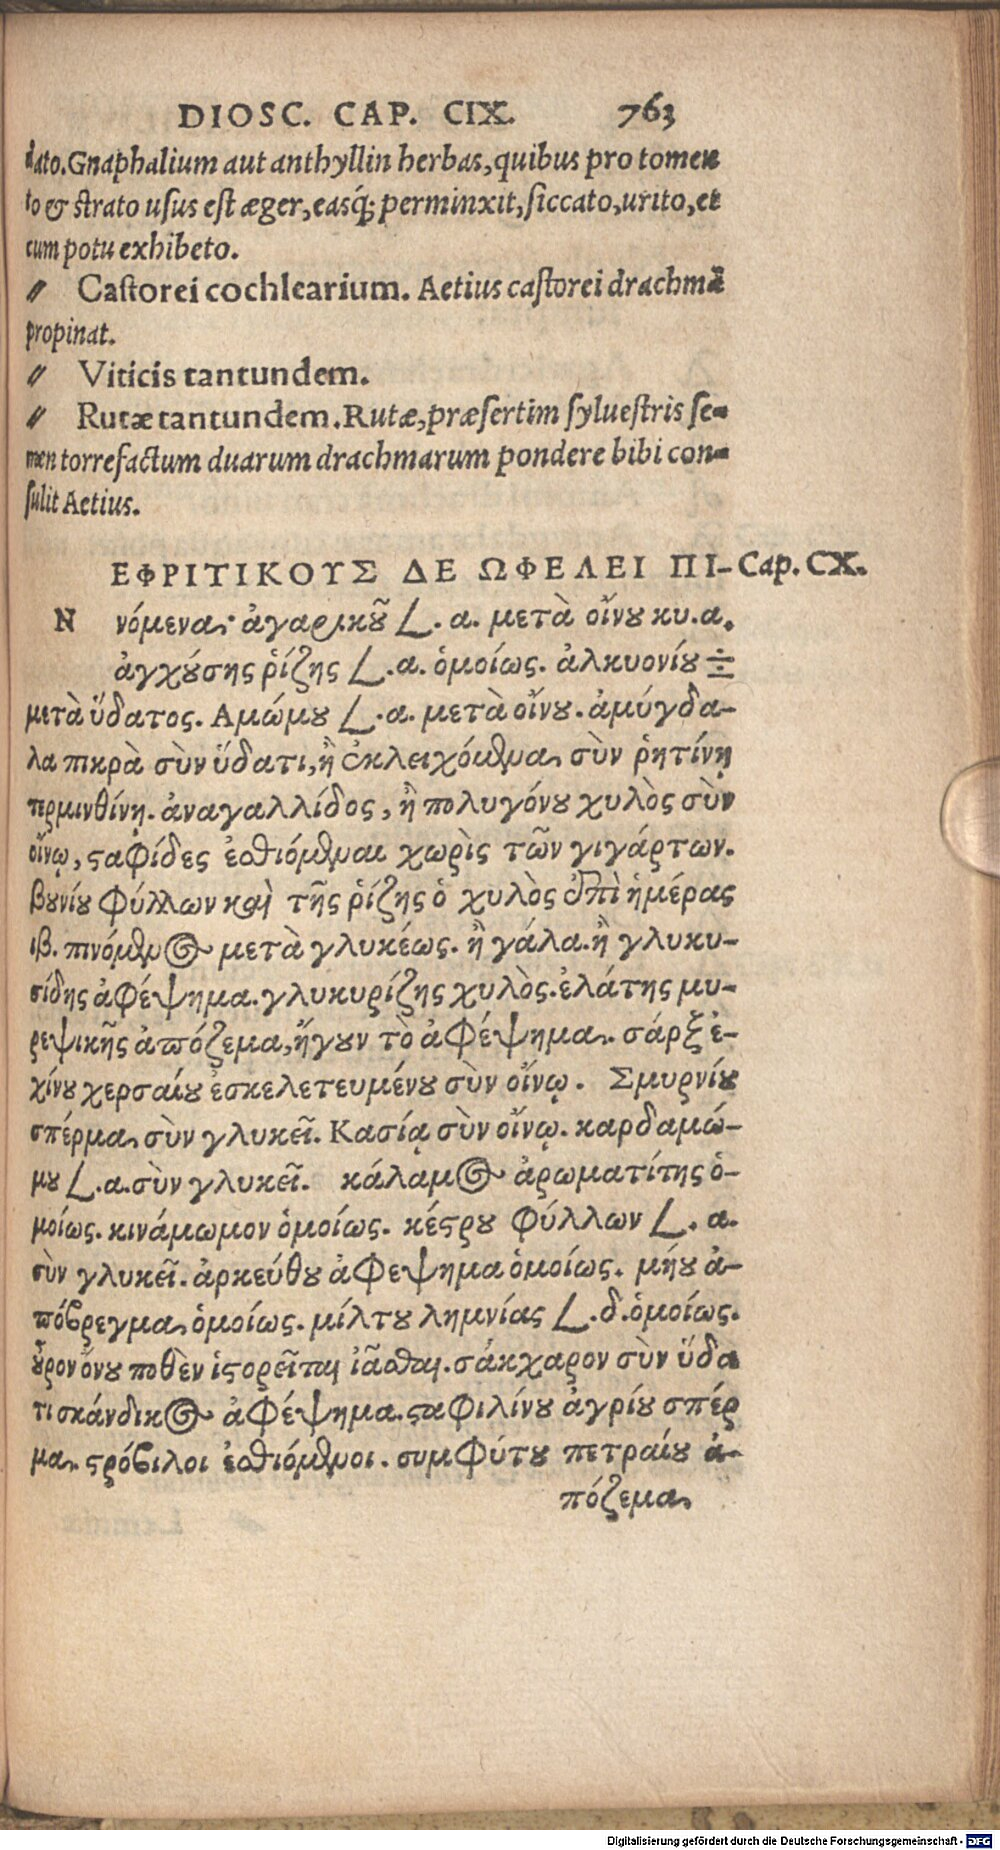 DIOSC. CAP. CIX. 763
dato. Gnaphalium aut anthyllin herbas, quibus pro tomen
to & strato usus est æger, easq́; perminxit, siccato, urito, et
cum potu exhibeto.
〃 Castorei cochlearium. Aetius castorei drachmā
propinat.
〃 Viticis tantundem.
〃 Rutæ tantundem. Rutæ, præsertim sylvestris se-
men torrefactum duarum drachmarum pondere bibi con-
sulit Aetius.
ΕΦΡΙΤΙΚΟΥΣ ΔΕ ΩΦΕΛΕΙ ΠΙ- Cap. CX.
Ν νόμενα· ἀγαρικοῦ 𐅻. α. μετὰ οἴνου κυ. α.
ἀγχούσης ῥίζης 𐅻. α. ὁμοίως. ἀλκυονίου ÷
μετὰ ὕδατος. Αμώμου 𐅻. α. μετὰ οἴνου. ἀμύγδα-
λα πικρὰ σὺν ὕδατι, ἢ ἐκλειχόμενα σὺν ῥητίνῃ
τερμινθίνῃ. ἀναγαλλίδος, ἢ πολυγόνου χυλὸς σὺν
οἴνῳ, σταφίδες ἐσθιόμεναι χωρὶς τῶν γιγάρτων.
βουνίου φύλλων καὶ τῆς ῥίζης ὁ χυλὸς ἐπὶ ἡμέρας
ιβ. πινόμενος μετὰ γλυκέως. ἢ γάλα. ἢ γλυκυ-
σίδης ἀφέψημα. γλυκυρίζης χυλὸς. ἐλάτης μυ-
ρεψικῆς ἀπόζεμα, ἤγουν τὸ ἀφέψημα. σάρξ ἐ-
χίνου χερσαίου ἐσκελετευμένου σὺν οἴνῳ. Σμυρνίου
σπέρμα σὺν γλυκεῖ. Κασίᾳ σὺν οἴνῳ. καρδαμώ-
μου 𐅻. α. σὺν γλυκεῖ. κάλαμος ἀρωματίτης ὁ-
μοίως. κινάμωμον ὁμοίως. κέστρου φύλλων 𐅻. α.
σὺν γλυκεῖ. ἀρκεύθου ἀφεψημα ὁμοίως. μήου ἀ-
πόβρεγμα ὁμοίως. μίλτου λημνίας 𐅻. δ. ὁμοίως.
οὖρον ὄνου ποθὲν ἱστορεῖται ἰᾶσθαι. σάκχαρον σὺν ὕδα
τι σκάνδικος ἀφέψημα. σταφιλίνου ἀγρίου σπέρ
μα. στρόβιλοι ἐσθιόμενοι. συμφύτου πετραίου ἀ-
πόζεμα
Digitalisierung gefördert durch die Deutsche Forschungsgemeinschaft - DFG